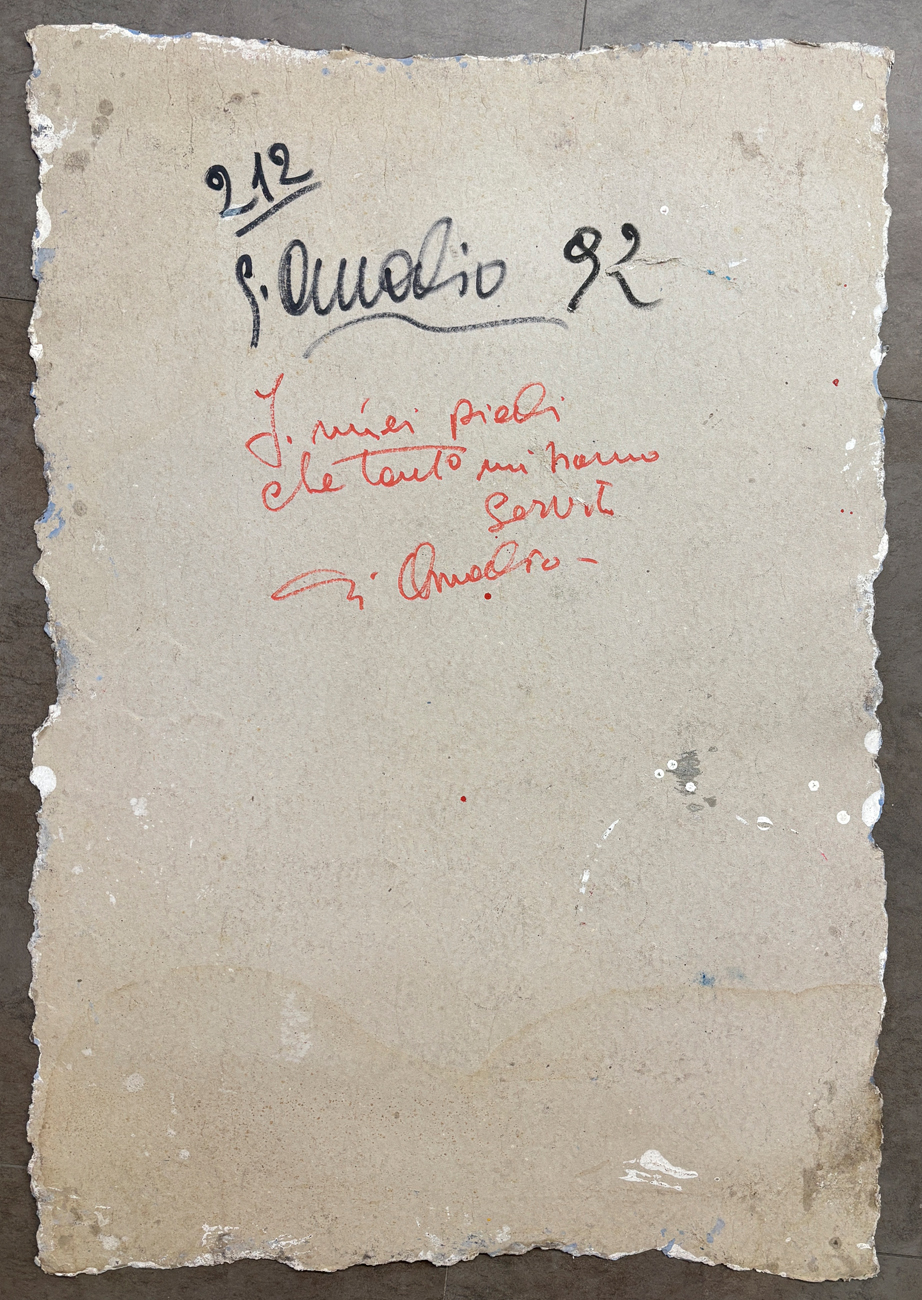 212
G. Amadio 92
I. miei piedi
che tanto mi hanno
servito
Di Amadio -